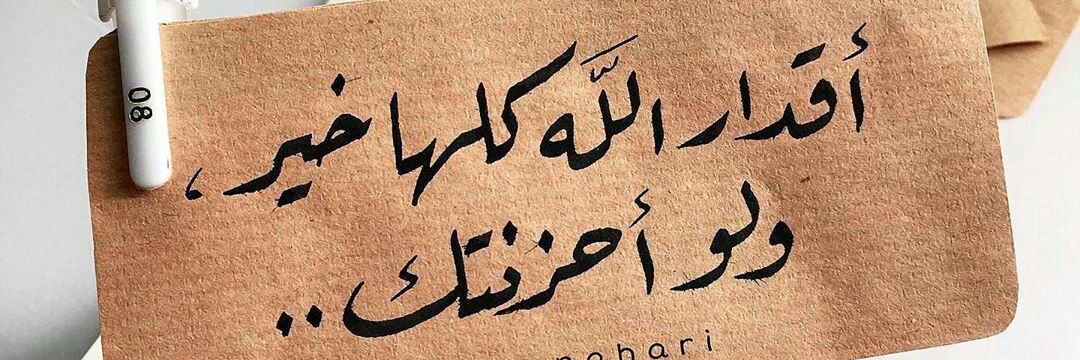 أقدار اللَّه كلها خير ،
ولو أحزنتك ..
08